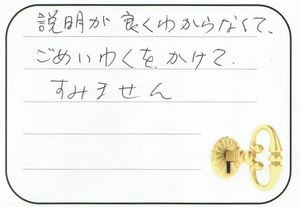 説明が良くわからなくて、
ごめいわくを、かけて、
すみません